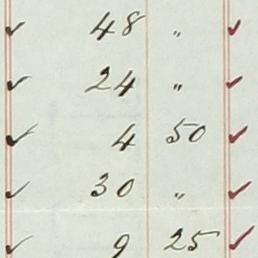 48 "
24 "
4 50
30 "
9 25